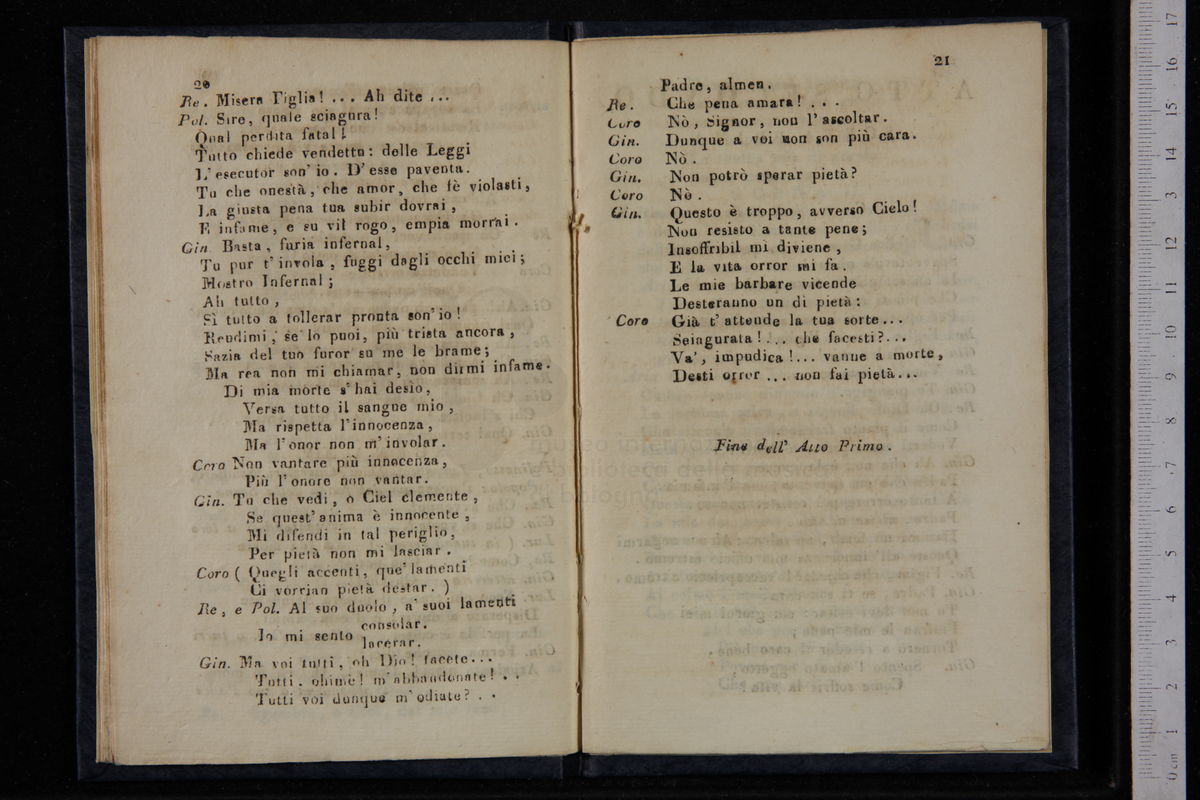 20
Re. Misera Figlia! ... Ah dite ...
Pol. Sire, quale sciagura!
Qual perdita fatal!
Tutto chiede vendetta: delle Leggi
L' esecutor son' io. D' esse paventa.
Tu che onestà, che amor, che fè violasti,
La giusta pena tua subir dovrai,
E infame, e su vil rogo, empia morrai.
Gin. Basta, furia infernal,
Tu pur t' invola, fuggi dagli occhi miei;
Mostro Infernal;
Ah tutto,
Sì tutto a tollerar pronta son' io!
Rendimi, se lo puoi, più trista ancora,
Sazia del tuo furor su me le brame;
Ma rea non mi chiamar, non dirmi infame.
Di mia morte s' hai desìo,
Versa tutto il sangue mio,
Ma rispetta l' innocenza,
Ma l' onor non m' involar.
Coro Non vantare più innocenza,
Più l' onore non vantar.
Gin. Tu che vedi, o Ciel clemente,
Se quest' anima è innocente,
Mi difendi in tal periglio,
Per pietà non mi lasciar.
Coro ( Quegli accenti, que' lamenti
Ci vorrian pietà destar. )
Re, e Pol. Al suo duolo, a' suoi lamenti
consolar.
Io mi sento
lacerar.
Gin. Ma voi tutti, oh Dio! tacete...
Tutti. ohimè! m' abbandonate! . .
Tutti voi dunque m' odiate? . .
21
Padre, almen.
Re. Che pena amara! . . .
Coro Nò, Signor, non l' ascoltar.
Gin. Dunque a voi non son più cara.
Coro Nò.
Gin. Non potrò sperar pietà?
Coro Nò.
Gin. Questo è troppo, avverso Cielo!
Non resisto a tante pene;
Insoffribil mi diviene,
E la vita orror mi fa.
Le mie barbare vicende
Desteranno un dì pietà:
Coro Già t' attende la tua sorte...
Sciagurata!... che facesti?...
Va', impudica!... vanne a morte,
Desti orror ... non fai pietà...
Fine dell' Atto Primo.